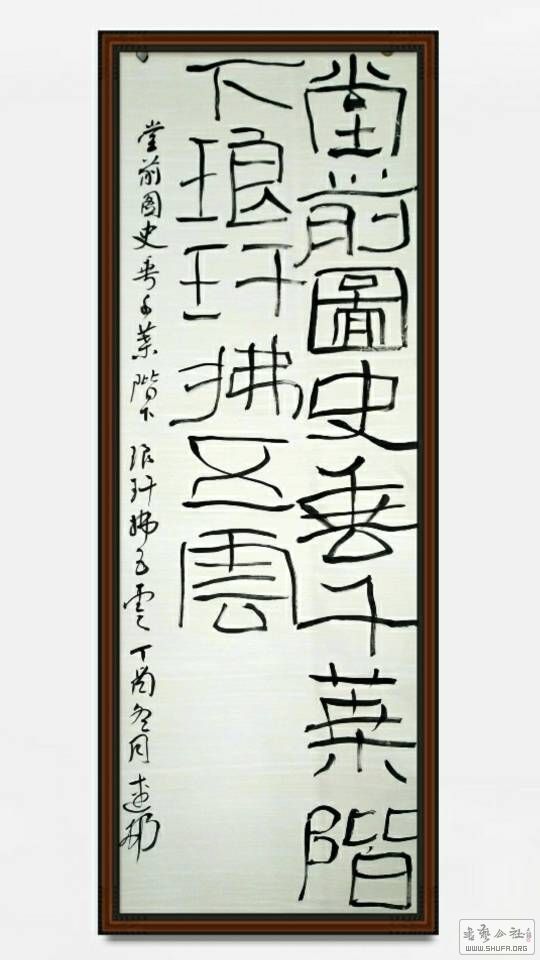 堂前圖史垂千葉階
下琅玕拂五雲
堂前圖史垂千葉階下琅玕拂五雲丁酉冬月
WWW.SHUFA.ORG